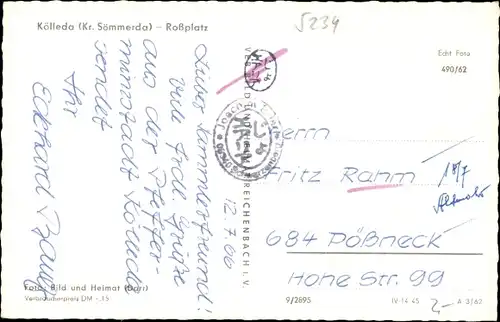 Kölleda (Kr. Sömmerda) – Roßplatz
5234
Echt Foto
490/62
12.7.66
Lieber Sammlerfreund!
Viele frdl. Grüße
aus der Pfeffer-
minzstadt Kölleda
sendet
Ihr
Eckhard
Herrn
Fritz Rahm
18/7
684 Pößneck
Hohe Str. 99
REICHENBACH i. V.
Foto: Bild und Heimat (Darr)
Verbraucherpreis DM -,15
9/2895
IV-14-45
A 3/62
2,-